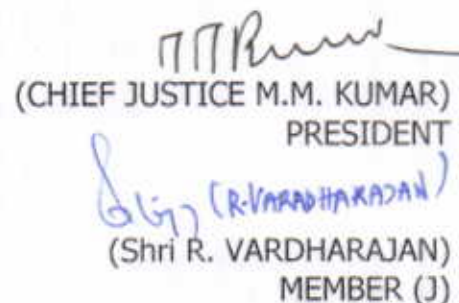 MMKumar
(CHIEF JUSTICE M.M. KUMAR)
PRESIDENT
(R.VARADHARAJAN)
(Shri R. VARDHARAJAN)
MEMBER (J)